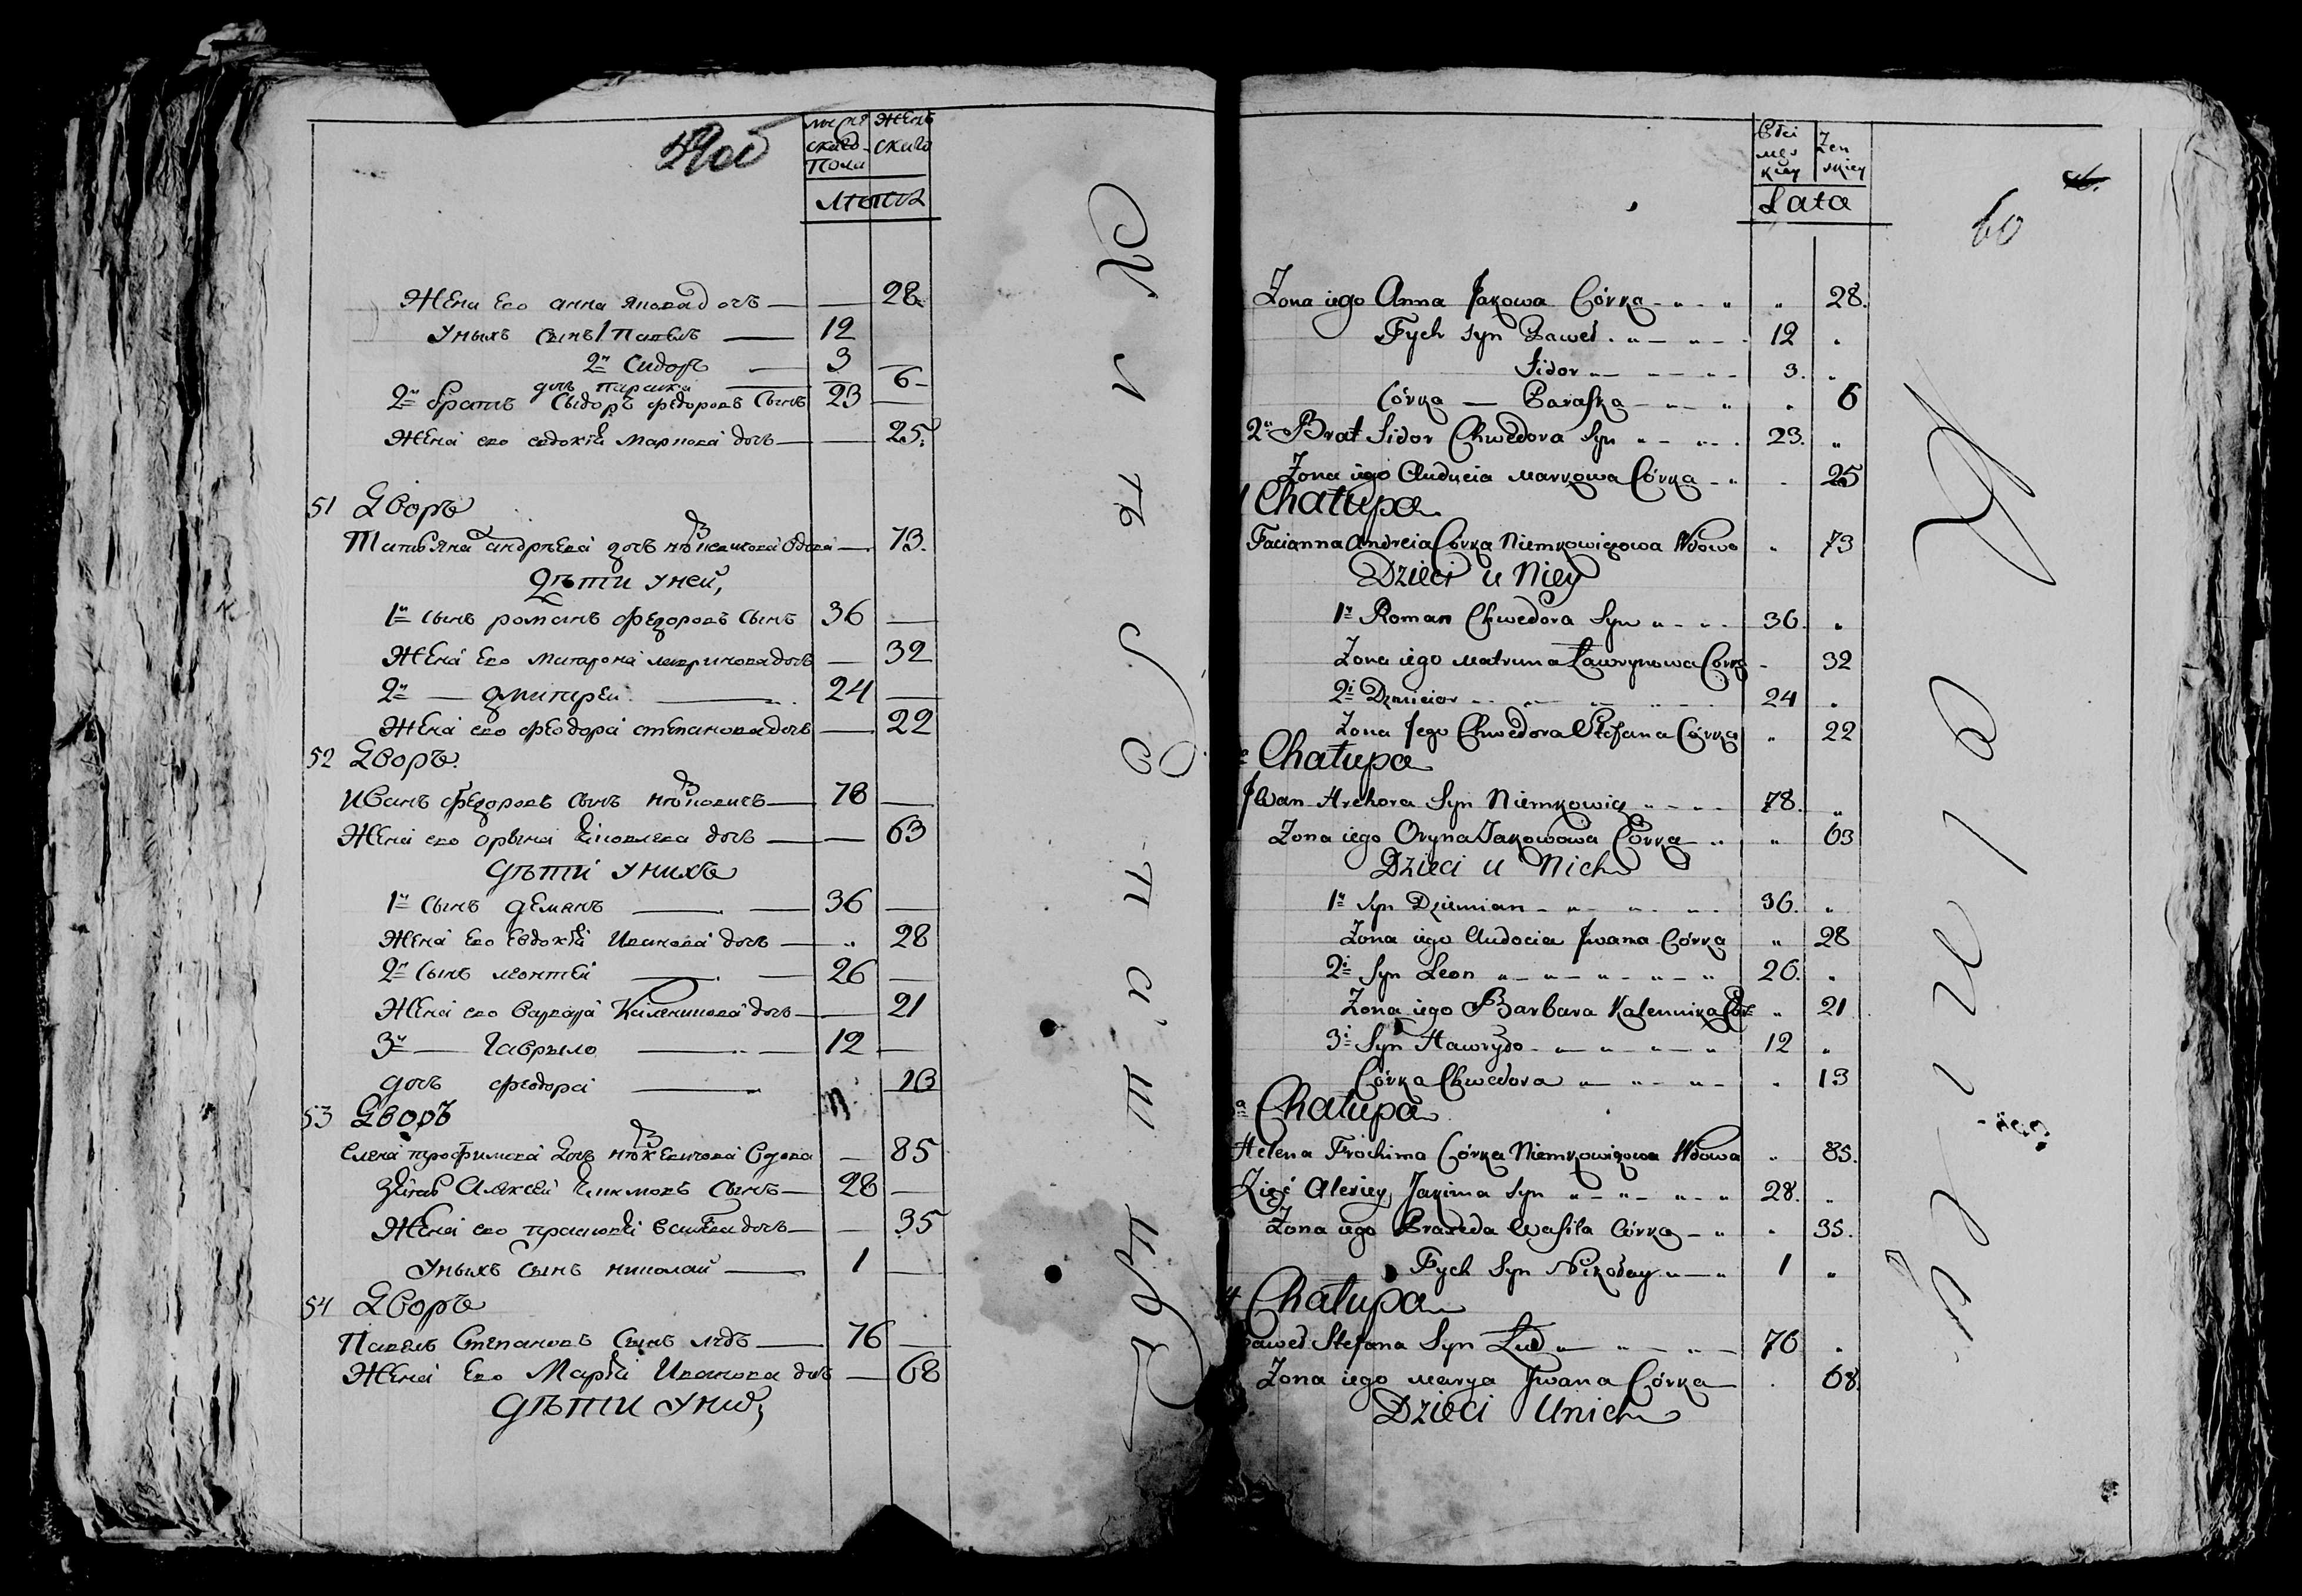 мужескаго пола
женскаго
лѣта
Жена Его анна яковa дочь — — 28.
Уныхъ сынъ 1 павелъ — 12
2й Сидоръ — 3
дочь параска — 6
2й братъ Сыдоръ федоровъ сынъ 23 —
Жена его евдокия маркова дочь — — 25.
51 Дворъ
Татьяна андрѣева дочь нѣмкевичова вдова — 73.
Дѣти уней,
1й сынъ романъ федоровъ сынъ 36 —
Жена Его матрона лавринова дочь — 32
2й — дмитрей — 24 —
Жена его феодора степанова дочь — 22
52 Дворъ
Иванъ федоровъ сынъ — 78 —
Жена его орына яковлева дочь — — 63
дѣти унихъ
1й сынъ демянъ — 36 —
Жена Его Евдокия Иванова дочь — „ 28
2й сынъ леонтей — 26 —
Жена его варвара Каленикова дочь — — 21
3й — гаврыло — 12 —
дочь феодора — 13
53 Дворъ
Елена трофимова дочь нѣмкевичова вдова — 85
зять Алексей якимовъ сынъ — 28 —
Жена его васильева дочь — — 35
уныхъ сынъ николай — 1 —
54 Дворъ
Павелъ Степановъ сынъ лудъ — 76 —
Жена Его Мария Иванова дочь — 68
дѣти уних,
Płci męzkiey
Zenskiey
Lata
60
Zona iego Anna Jakowa Córka „ 28.
Tych syn Paweł 12 „
Sidor 3. „
Córka — Paraska „ 6
2i Brat Sidor Chwedora Syn 23. „
Zona iego Auducia Markowa Córka „ 25
Chałupa
Tacianna Andreia Córka Niemkowiczowa Wdowa „ 73
Dzieci u Niey
1y Roman Chwedora Syn 36. „
Zona iego Matruna Ławrynowa Córka „ 32
2i Dzmicior 24 „
Zona Jego Chwedora Stefana Córka „ 22
Chałupa
Iwan Hrehora Syn Niemkowicz 78. „
Zona iego Oryna Jakowowa Córka „ 63
Dzieci u Nich
1y Syn Dziemian 36. „
Zona iego Audocia Iwana Córka „ 28
2i Syn Leon 26. „
Zona iego Barbara Kalennika Cór: „ 21
3i Syn Hawryło 12 „
Córka Chwedora „ 13
Chałupa
Helena Trochima Córka Niemkowiczowa Wdowa „ 85.
Zięć Alexiey Jakima Syn 28. „
Zona iego Praxeda Wasila Córka „ 35.
Tych Syn Nikołay 1 „
Chałupa
Paweł Stefana Syn Lud 76 „
Zona iego Marya Iwana Córka „ 68.
Dzieci Unich